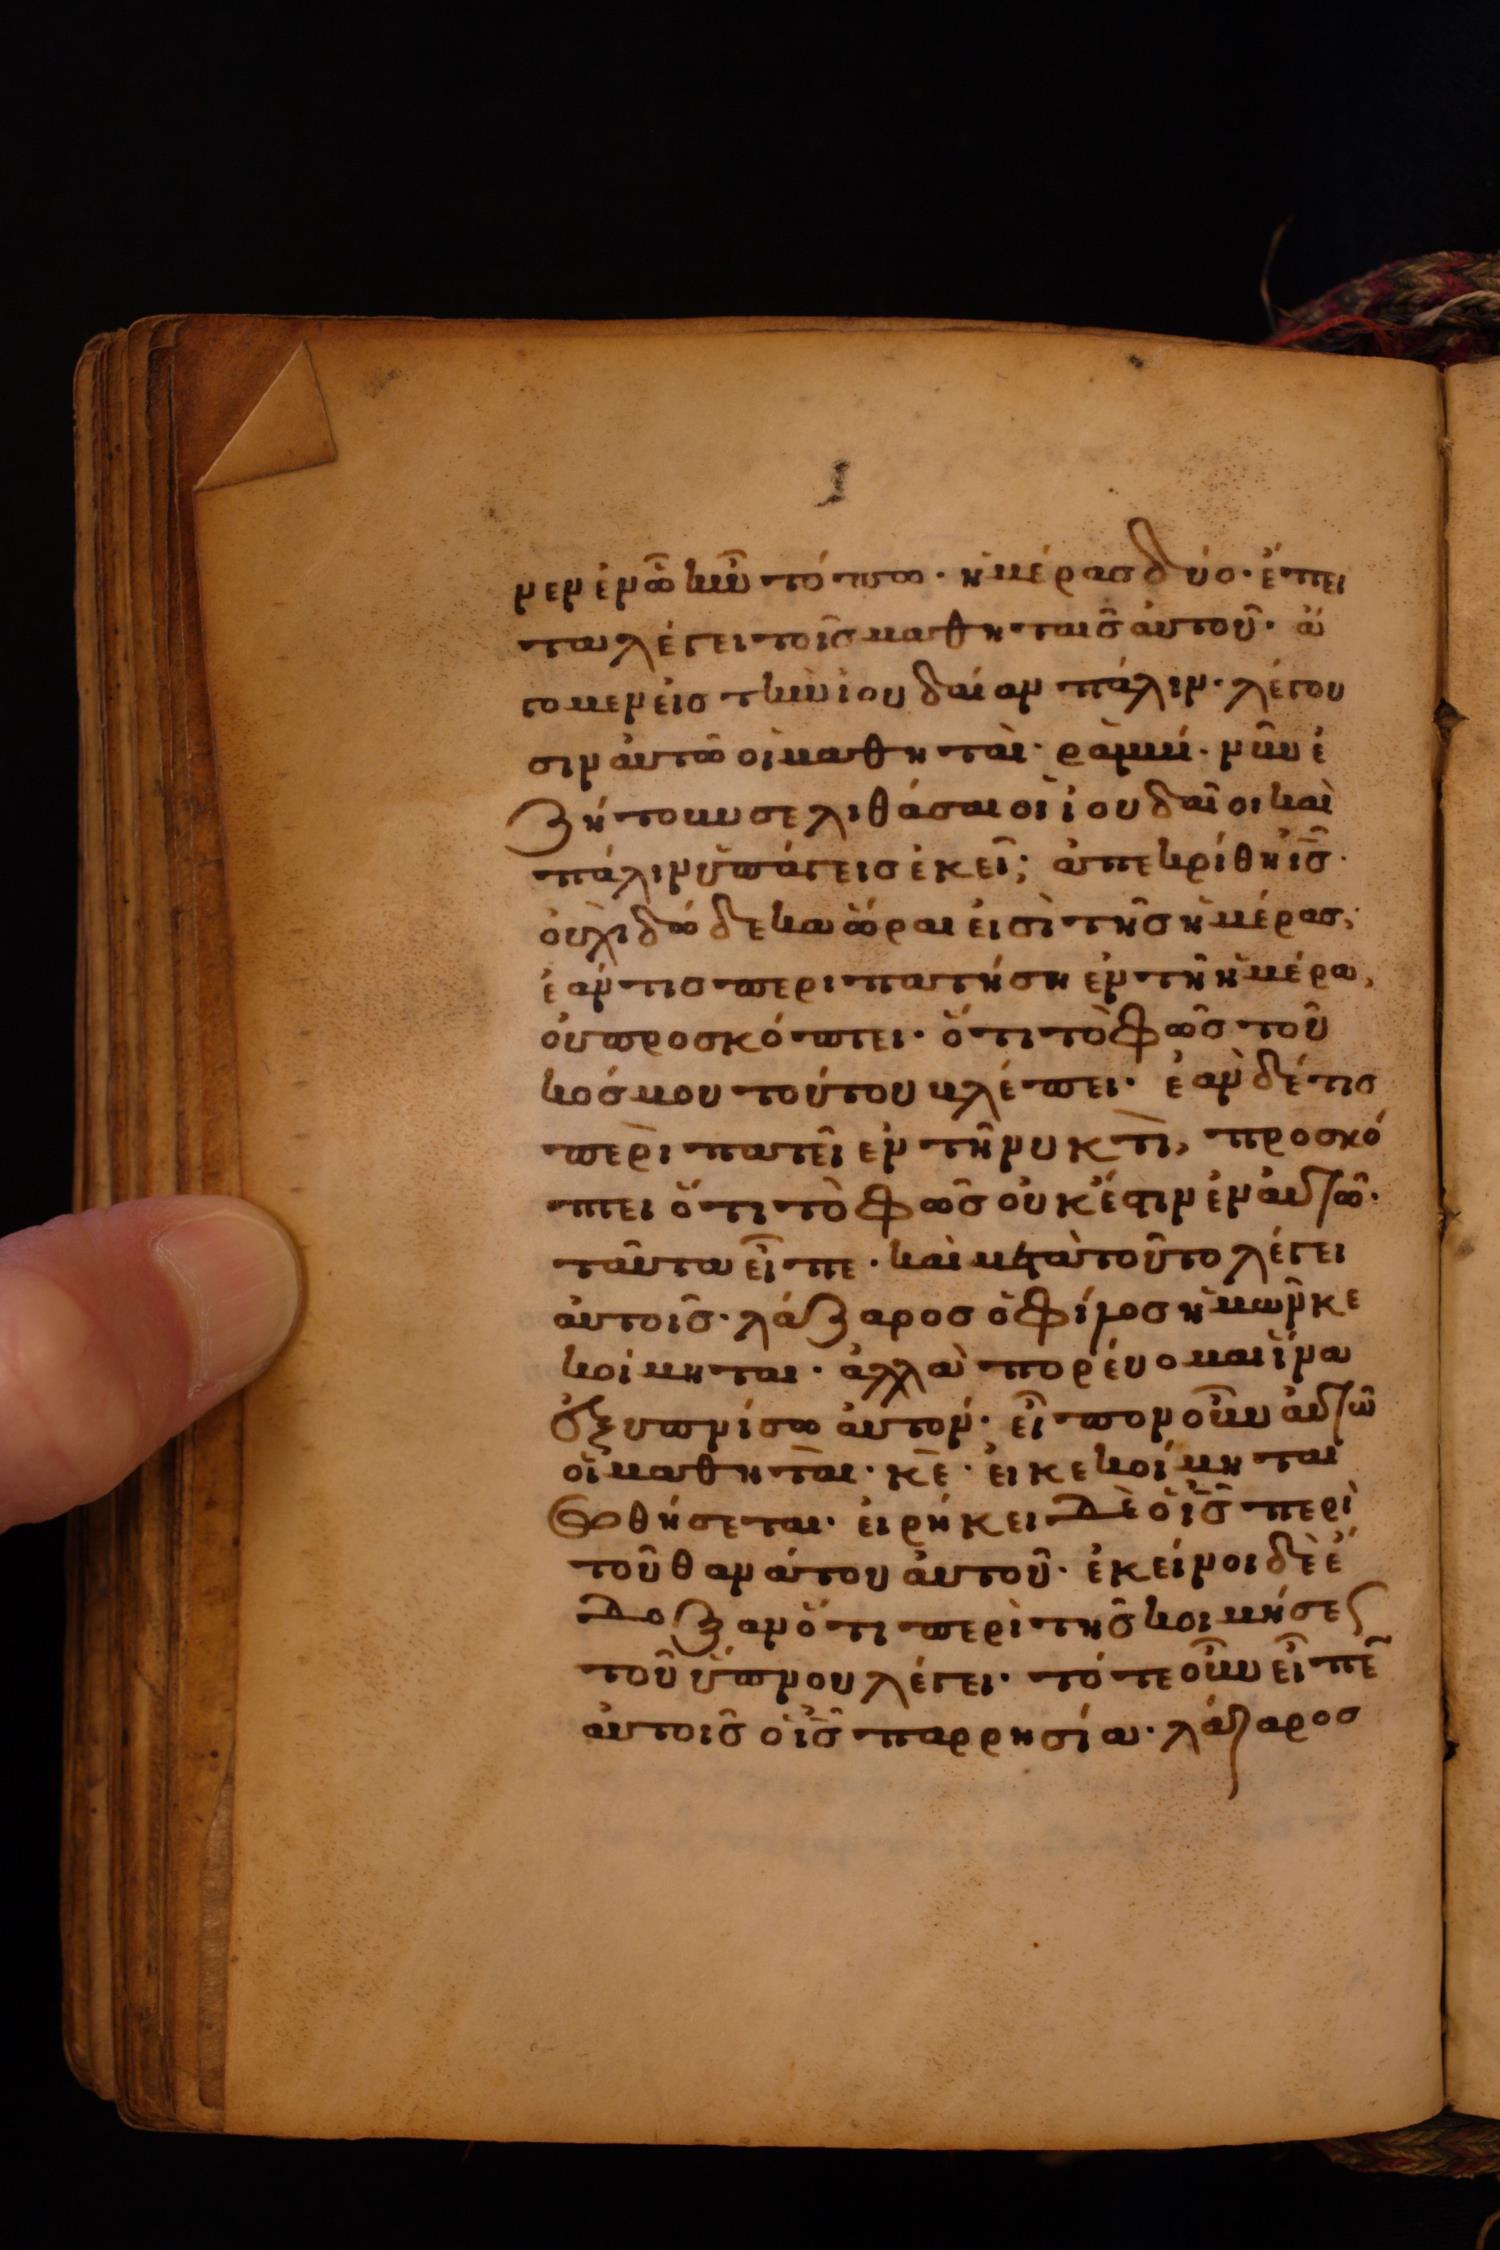 νεν ἐν ὧ ἦν τόπω· ἡμέρας δύο· ἔπει
τα λέγει τοῖς μαθηταῖς ἀυτοῦ· ἄ
γομεν ἐις τὴν ἰουδαίαν πάλιν· λέγου
σιν ἀυτῶ οἱ μαθηταὶ· ῥαββί· νῦν ἐ
ζήτουν σε λιθάσαι οἱ ἰουδαῖοι καὶ
πάλιν ὑπάγεις ἐκεῖ; ἀπεκρίθη ἰς·
ὀυχὶ δώδεκα ὧραι ἐισὶ τῆς ἡμέρας;
ἐάν τις περιπατήση ἐν τῆ ἡμέρα,
ὀυ προσκόπτει· ὅτι τὸ φῶς τοῦ
κόσμου τούτου βλέπει· ἐὰν δέ τις
περὶπατεῖ ἐν τῆ νυκτὶ, προσκό
πτει ὅτι τὸ φῶς ὀυκ ἔστιν ἐν ἀυτῶ·
ταῦτα εἶπε· καὶ μετὰ τοῦτο λέγει
ἀυτοῖς· λάζαρος ὁ φίλος ἡμῶν κε
κοίμηται· ἀλλὰ πορέυομαι ἵνα
ἐξυπνίσω ἀυτόν· εἶπον οὖν ἀυτῶ
οἱ μαθηταὶ· κὲ· ἐι κεκοίμηται
σωθήσεται· ἐιρήκει δὲ ὁ ἰς περὶ
τοῦ θανάτου ἀυτοῦ· ἐκείνοι δὲ ἔ
δοξαν ὅτι περὶ τῆς κοιμήσεως
τοῦ ὕπνου λέγει· τότε οὖν εἶπεν
ἀυτοῖς ὁ ἰς παρρησία· λάζαρος